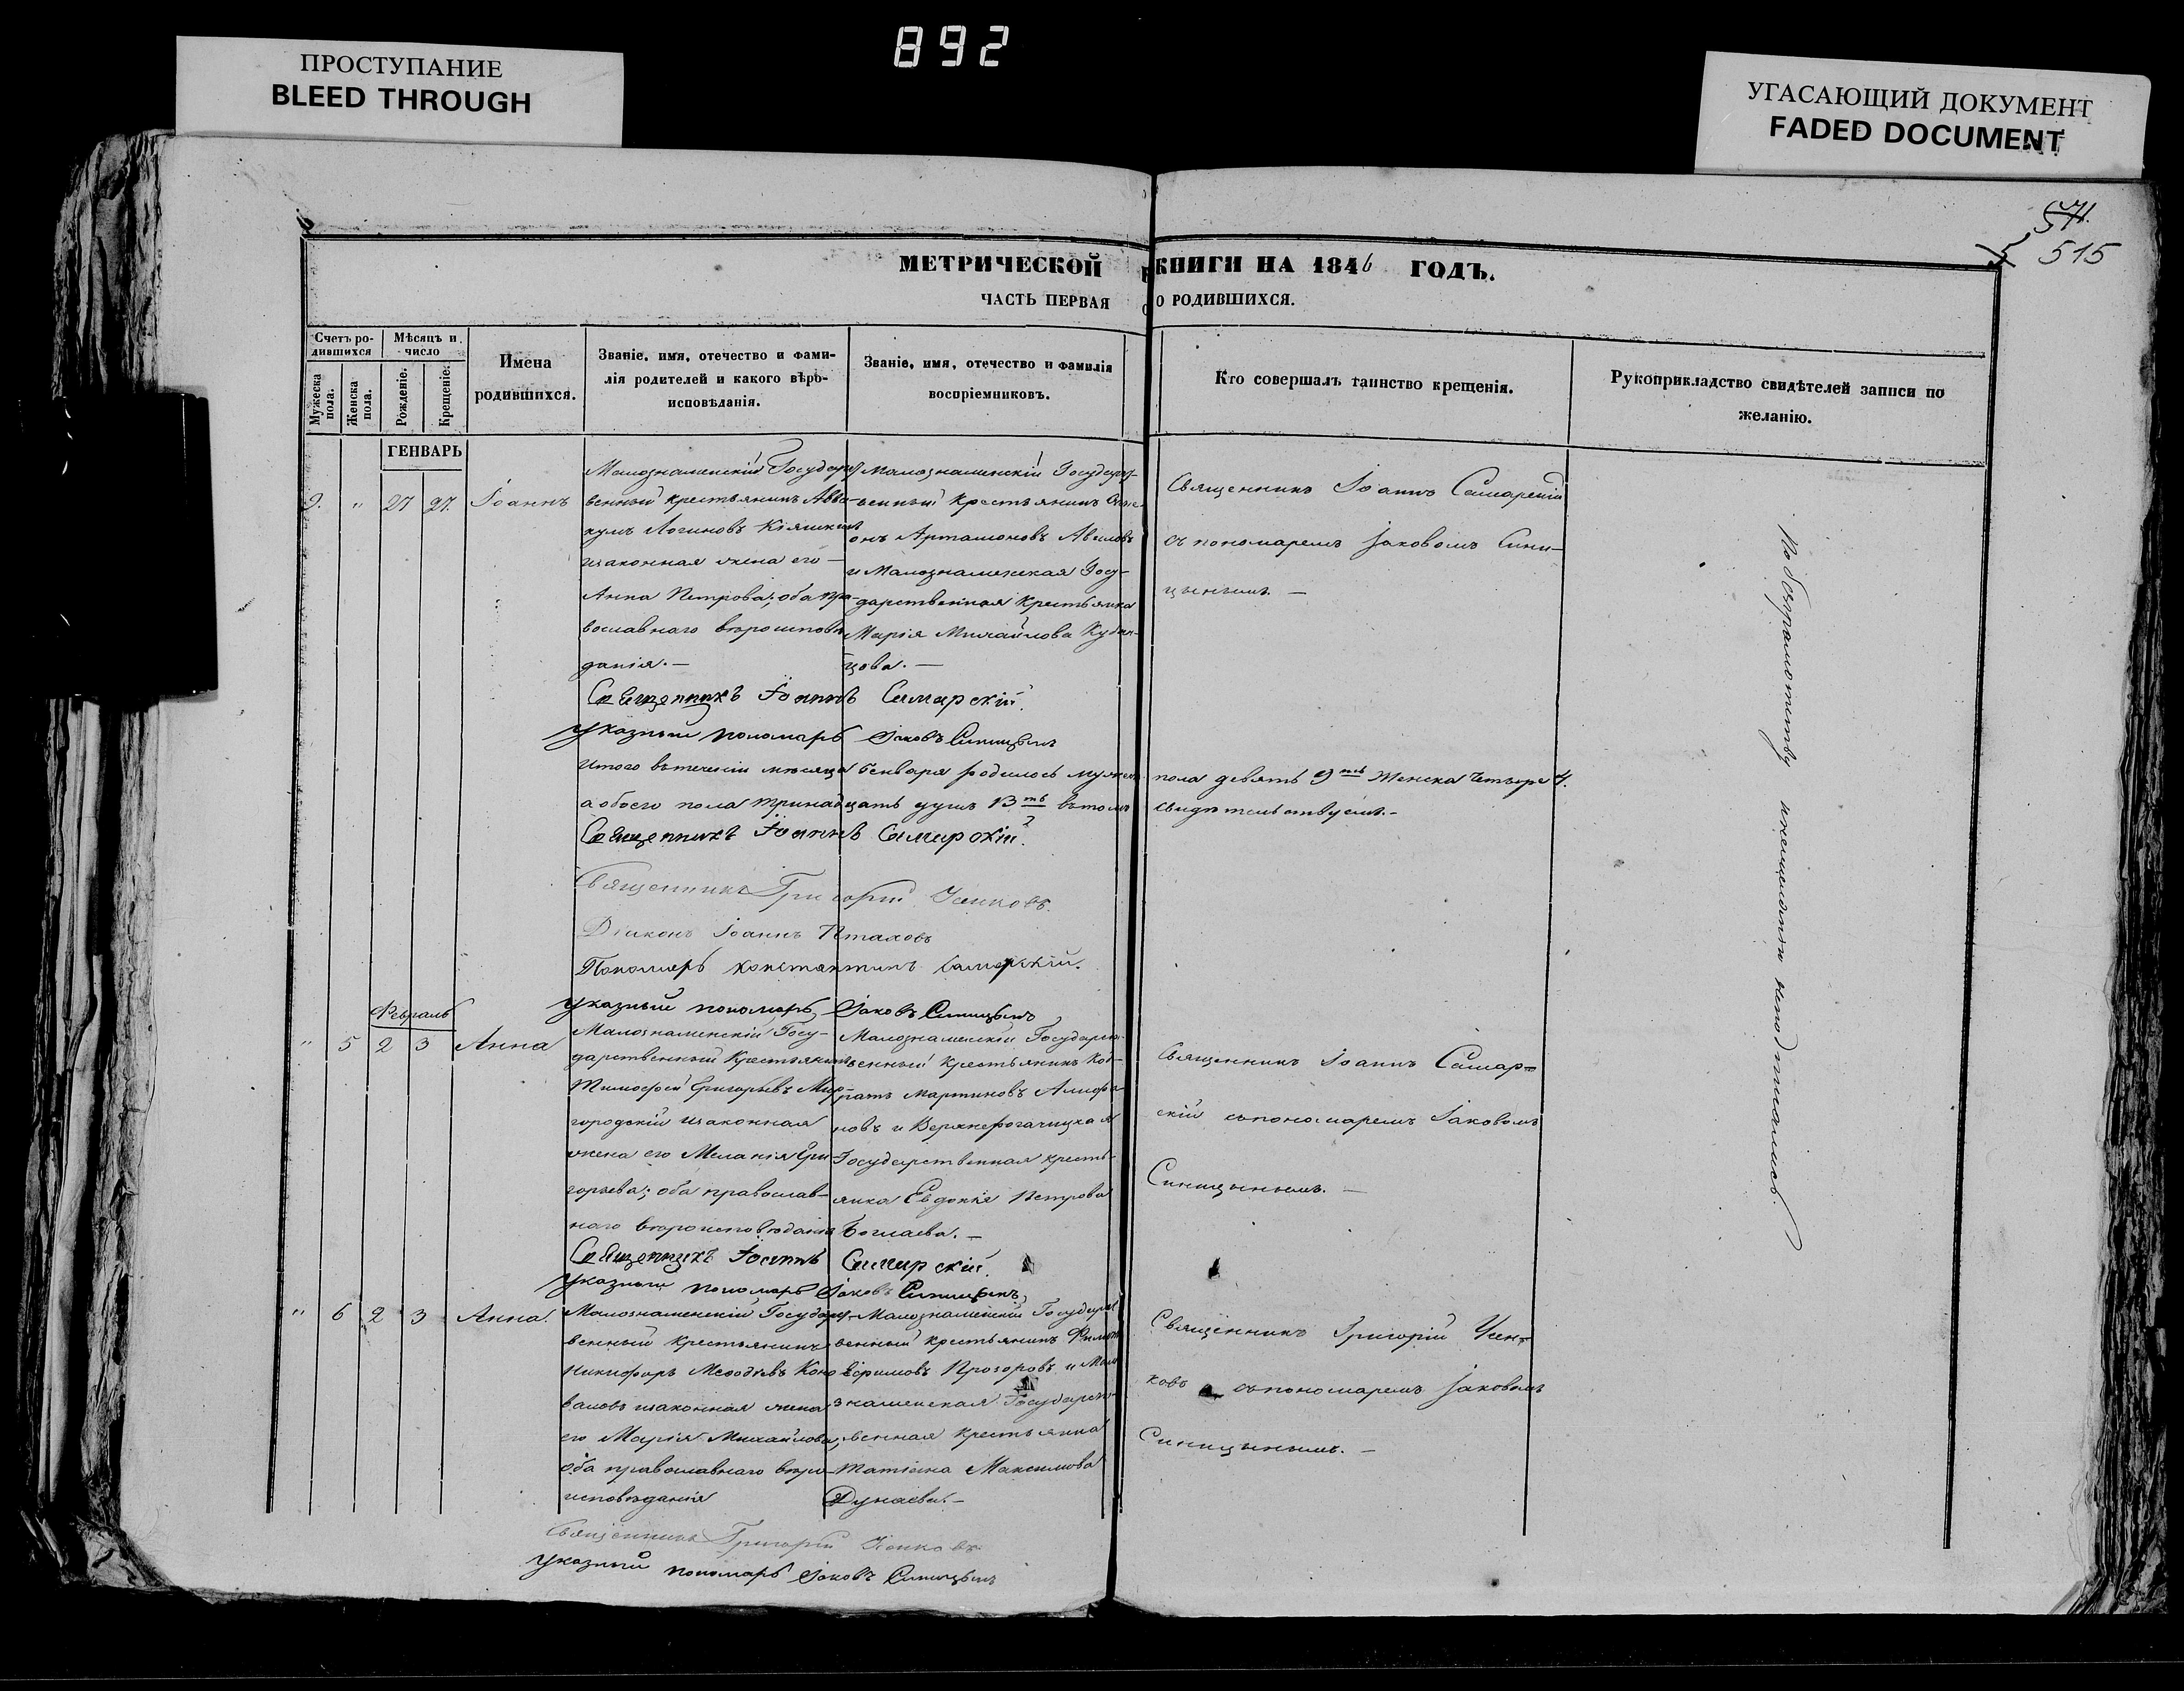 892
ПРОСТУПАНИЕ
BLEED THROUGH
УГАСАЮЩИЙ ДОКУМЕНТ
FADED DOCUMENT
515
МЕТРИЧЕСКОЙ КНИГИ НА 1846 ГОДЪ.
ЧАСТЬ ПЕРВАЯ О РОДИВШИХСЯ.
Счетъ ро-
дившихся
Мужеска
пола.
Женска
пола.
Мѣсяцъ и
число
Рожденіе.
Крещеніе.
Имена
родившихся.
Званіе, имя, отечество и фами-
лія родителей и какого вѣро-
исповѣданія.
Званіе, имя, отечество и фамилія
воспріемниковъ.
Кто совершалъ таинство крещенія.
Рукоприкладство свидѣтелей записи по
желанію.
ГЕНВАРЬ
9. " 27 27. Іоаннъ
Малознаменскій Государст-
венный крестьянинъ Авва-
кумъ Логиновъ
изаконная жена его
Анна Петрова; оба пра-
вославнаго вѣроисповѣ-
данія.—
Малознаменскій Государст-
венный Крестьянинъ
Артамоновъ Авиловъ
и Малознаменская Госу-
дарственная Крестьянка
Марія Михайлова
цова.—
Священникъ Іоаннъ Самарскій
съ пономаремъ Іаковомъ Сини-
цынымъ.—
Священникъ Іоаннъ Самарскій.
Указный пономарь Іаковъ Синицынъ
Итого втеченіи мѣсяца Генваря родилось мужеска пола девять 9ть Женска Четыре 4.
а обоего пола тринадцать душъ 13ть вътомъ свидѣтельствуемъ.—
Священникъ Іоаннъ Самарскій.
Священникъ Григорій Усенковъ.
Діаконъ Іоаннъ Птаховъ
Пономарь Константинъ Самарскій.
Указный пономарь Іаковъ Синицынъ
Февраль
" 5 2 3 Анна
Малознаменскій Госу-
дарственный Крестьянинъ
Тимофей Григорьевъ Мир-
городскій изаконная
жена его Меланія Гри-
горьева; оба православ-
наго вѣроисповѣданія
Малознаменскій Государст-
венный Крестьянинъ Код-
ратъ Мартиновъ
новъ и Верхнерогачицкая
Государственная кресть-
янка Евдокія Петрова
Священникъ Іоаннъ Самар-
скій съпономаремъ Іаковомъ
Синицынымъ.—
Священникъ Іоаннъ Самарскій.
Указный пономарь Іаковъ Синицынъ
" 6 2 3 Анна.
Малознаменскій Государст-
венный крестьянинъ
Никифоръ Мефодіевъ Коно-
валовъ изаконная жена
его Марія Михайлова;
оба православнаго вѣро-
исповѣданія
Малознаменскій Государст-
венный крестьянинъ
Ефимовъ Прозоровъ и Мало-
знаменская Государст-
венная крестьянка
Татіана Максимова
Дунаева.—
Священникъ Григорій Усен-
ковъ съпономаремъ Іаковомъ
Синицынымъ.—
Священникъ Григорій Усенковъ
Указный пономарь Іаковъ Синицынъ
По безграмотству